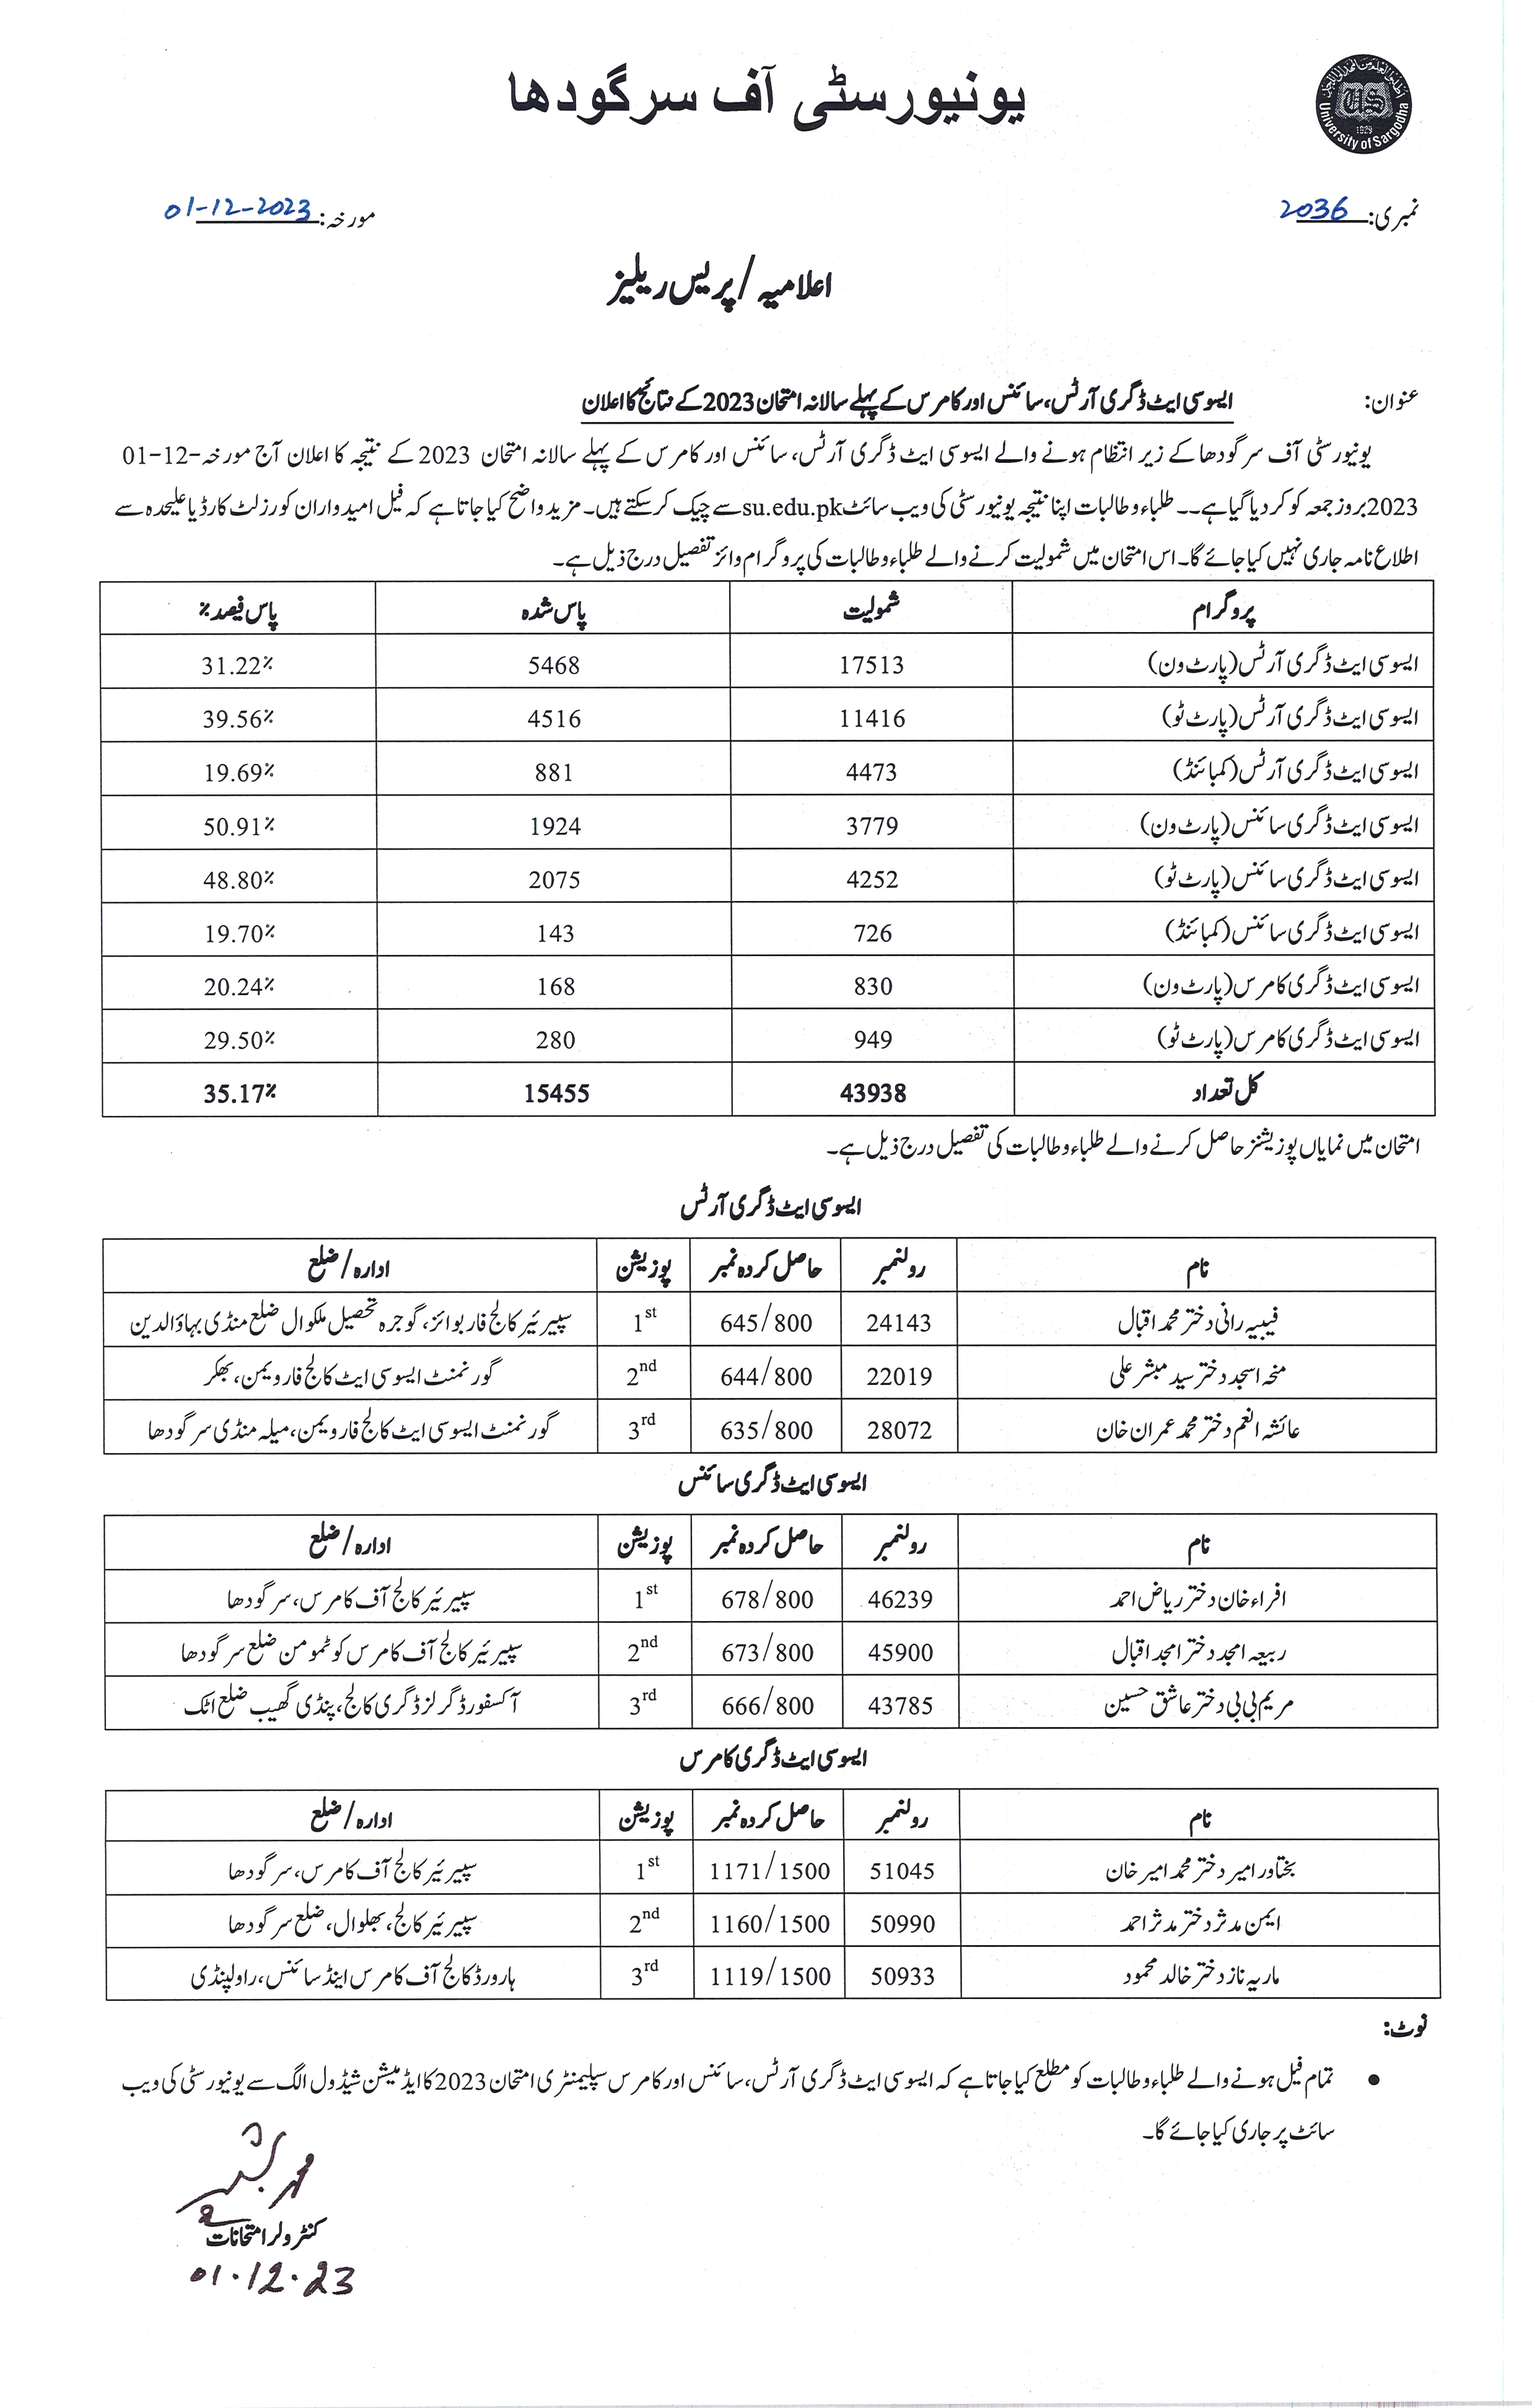 یونیورسٹی آف سرگودھا
University of Sargodha
1929
نمبری: 2036
مورخہ: 01-12-2023
اعلامیہ/پریس ریلیز
عنوان: ایسوسی ایٹ ڈگری آرٹس، سائنس اور کامرس کے پہلے سالانہ امتحان 2023 کے نتائج کا اعلان
یونیورسٹی آف سرگودھا کے زیر انتظام ہونے والے ایسوسی ایٹ ڈگری آرٹس، سائنس اور کامرس کے پہلے سالانہ امتحان 2023 کے نتیجہ کا اعلان آج مورخہ 01-12-
2023 بروز جمعہ کو کر دیا گیا ہے۔۔ طلباء و طالبات اپنا نتیجہ یونیورسٹی کی ویب سائٹ su.edu.pk سے چیک کر سکتے ہیں۔ مزید واضح کیا جاتا ہے کہ فیل امیدواران کو رزلٹ کارڈ یا علیحدہ سے
اطلاع نامہ جاری نہیں کیا جائے گا۔ اس امتحان میں شمولیت کرنے والے طلباء و طالبات کی پروگرام وائز تفصیل درج ذیل ہے۔
پروگرام شمولیت پاس شدہ پاس فیصد %
ایسوسی ایٹ ڈگری آرٹس (پارٹ ون) 17513 5468 31.22%
ایسوسی ایٹ ڈگری آرٹس (پارٹ ٹو) 11416 4516 39.56%
ایسوسی ایٹ ڈگری آرٹس (کمبائنڈ) 4473 881 19.69%
ایسوسی ایٹ ڈگری سائنس (پارٹ ون) 3779 1924 50.91%
ایسوسی ایٹ ڈگری سائنس (پارٹ ٹو) 4252 2075 48.80%
ایسوسی ایٹ ڈگری سائنس (کمبائنڈ) 726 143 19.70%
ایسوسی ایٹ ڈگری کامرس (پارٹ ون) 830 168 20.24%
ایسوسی ایٹ ڈگری کامرس (پارٹ ٹو) 949 280 29.50%
کل تعداد 43938 15455 35.17%
امتحان میں نمایاں پوزیشنز حاصل کرنے والے طلباء و طالبات کی تفصیل درج ذیل ہے۔
ایسوسی ایٹ ڈگری آرٹس
نام رولنمبر حاصل کردہ نمبر پوزیشن ادارہ/ضلع
فیبیہ رانی دختر محمد اقبال 24143 645/800 1st سپیریئر کالج فار بوائز، گوجرہ تحصیل ملکوال ضلع منڈی بہاؤالدین
منحہ اسجد دختر سید مبشر علی 22019 644/800 2nd گورنمنٹ ایسوسی ایٹ کالج فار ویمن، بھکر
عائشہ انعم دختر محمد عمران خان 28072 635/800 3rd گورنمنٹ ایسوسی ایٹ کالج فار ویمن، میلہ منڈی سرگودھا
ایسوسی ایٹ ڈگری سائنس
نام رولنمبر حاصل کردہ نمبر پوزیشن ادارہ/ضلع
افراء خان دختر ریاض احمد 46239 678/800 1st سپیریئر کالج آف کامرس، سرگودھا
ربیعہ امجد دختر امجد اقبال 45900 673/800 2nd سپیریئر کالج آف کامرس کوٹ مومن ضلع سرگودھا
مریم بی بی دختر عاشق حسین 43785 666/800 3rd آکسفورڈ گرلز ڈگری کالج، پنڈی گھیب ضلع اٹک
ایسوسی ایٹ ڈگری کامرس
نام رولنمبر حاصل کردہ نمبر پوزیشن ادارہ/ضلع
بختاور امیر دختر محمد امیر خان 51045 1171/1500 1st سپیریئر کالج آف کامرس، سرگودھا
ایمن مدثر دختر مدثر احمد 50990 1160/1500 2nd سپیریئر کالج، بھلوال، ضلع سرگودھا
ماریہ ناز دختر خالد محمود 50933 1119/1500 3rd ہارورڈ کالج آف کامرس اینڈ سائنس، راولپنڈی
نوٹ:
• تمام فیل ہونے والے طلباء و طالبات کو مطلع کیا جاتا ہے کہ ایسوسی ایٹ ڈگری آرٹس، سائنس اور کامرس سپلیمنٹری امتحان 2023 کا ایڈمیشن شیڈول الگ سے یونیورسٹی کی ویب
سائٹ پر جاری کیا جائے گا۔
کنٹرولر امتحانات
01.12.23